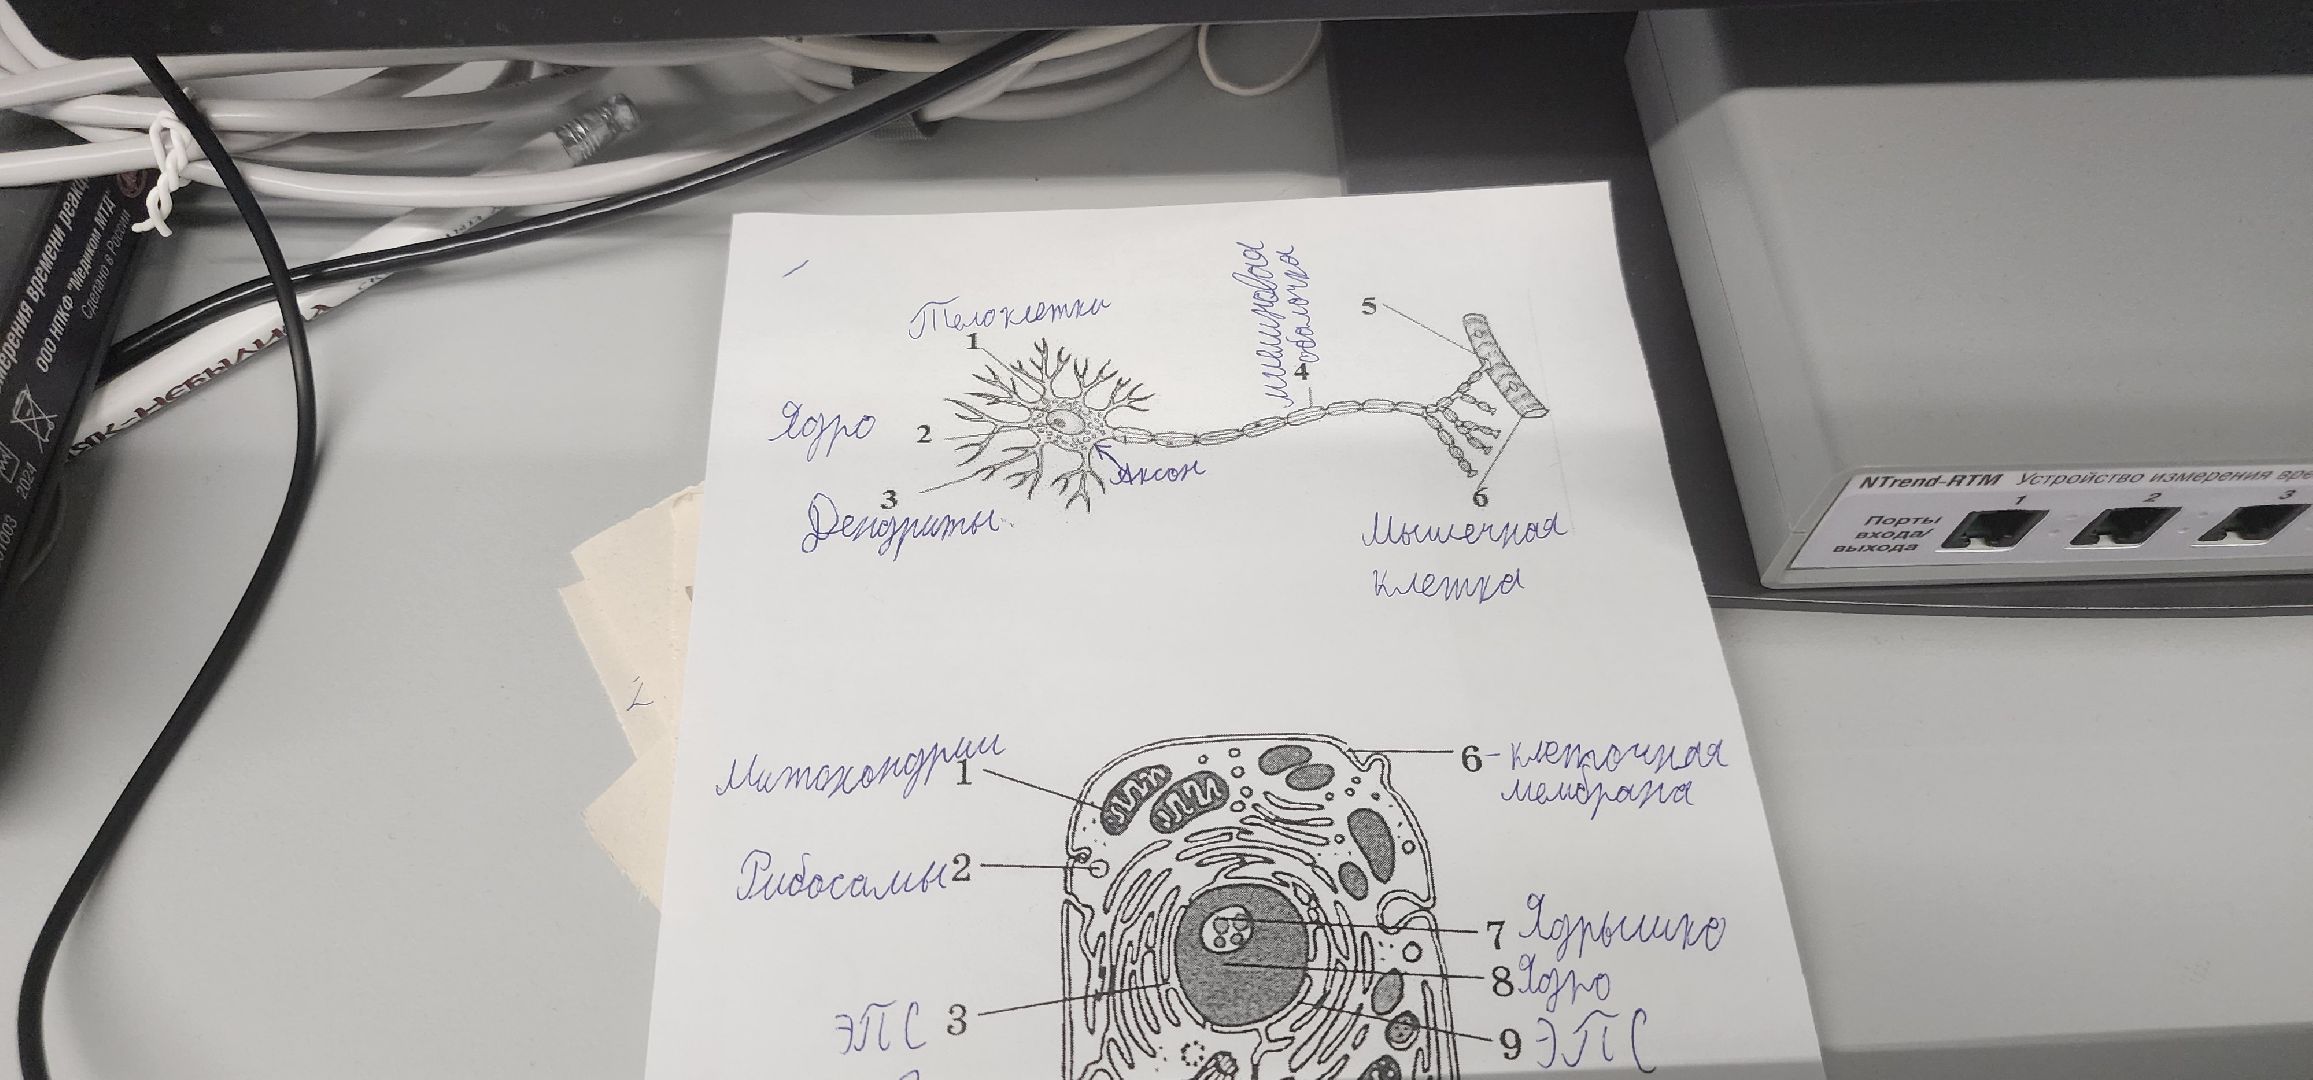 мерения времени реакц
ООО НПКФ "Медиком МТД"
Сделано в России
2024
миелиновая
оболочка
Тело клетки
1
4
5
Ядро
2
Аксон
3
Дендриты
6
Мышечная
клетка
NTrend-RTM Устройство измерения вре
Порты
входа/
выхода
1 2 3
Митохондрии
1
6 - клеточная
мембрана
Рибосамы 2
7 Ядрышко
8 Ядро
ЭПС 3
9 ЭПС